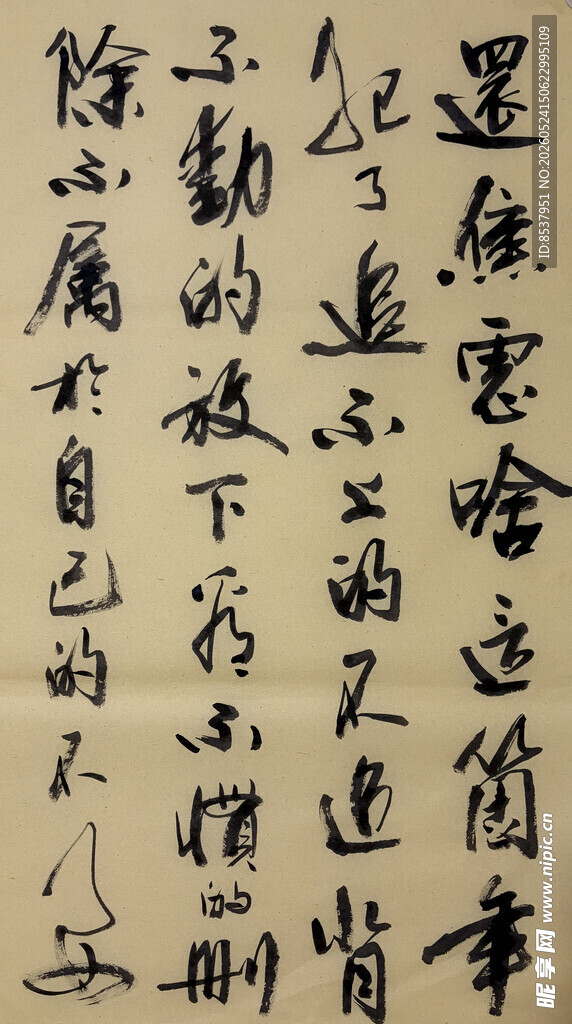 還焦慮啥這箇年
紀了追不上的不追背
不動的放下看不慣的刪
除不属於自己的不要
ID:8537951 NO:20260524150622995109
昵享网 www.nipic.cn